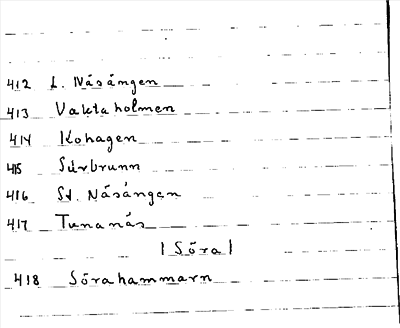 412 L. Näsängen
413 Vaktaholmen
414 Kohagen
415 Surbrunn
416 St. Näsängen
417 Tunanäs
| Söra |
418 Sörahammarn